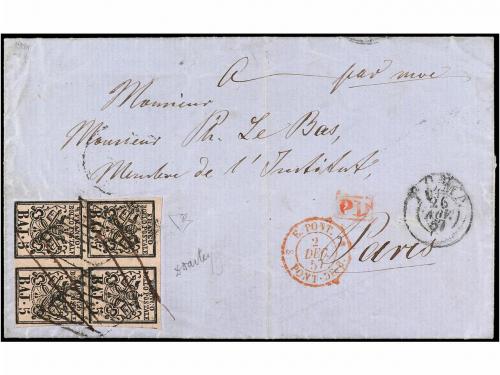 par mer
Monsieur
Monsieur Ph. Le Bas,
Membre de l'Institut,
Paris
P.D.
ROMA
26
57
E. PONT.
2
DEC
57
PONT-DE-B
BAJ. 5
BAJ. 5
BAJ. 5
BAJ. 5